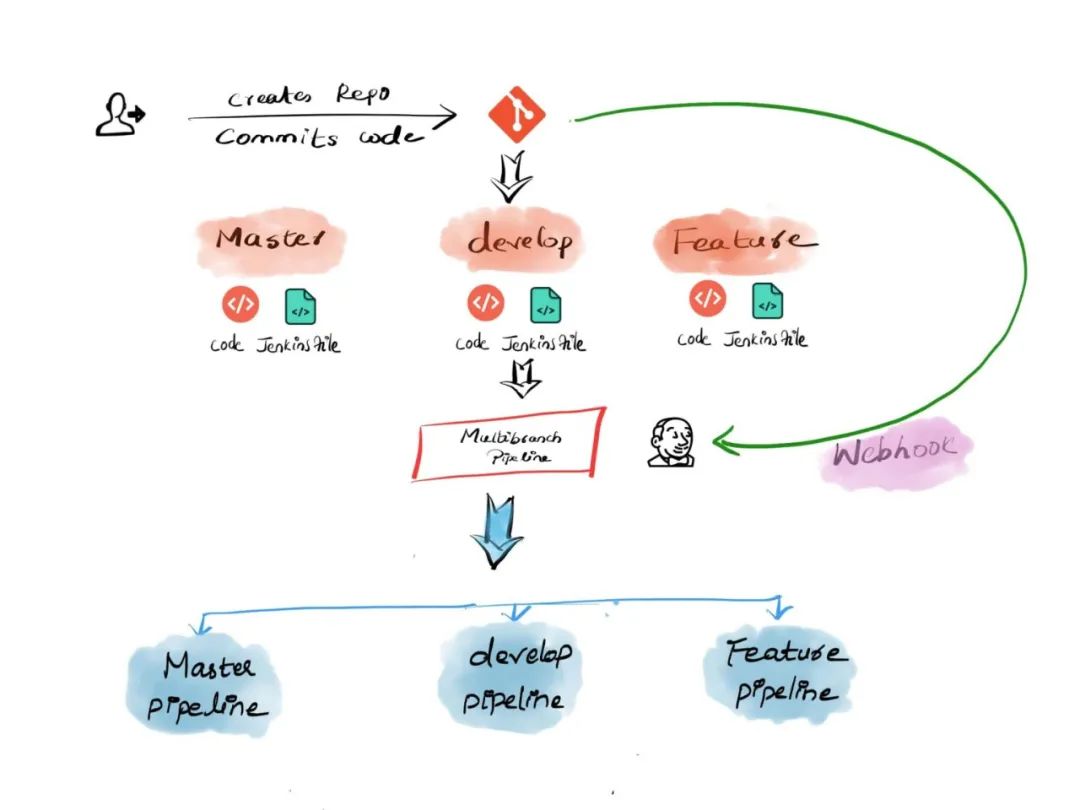 Creates Repo
Commits code
Master
develop
Feature
</>
</>
</>
</>
</>
</>
Code Jenkinsfile
Code Jenkinsfile
Code Jenkinsfile
Multibranch
Pipeline
Webhook
Master
pipeline
develop
pipeline
Feature
pipeline